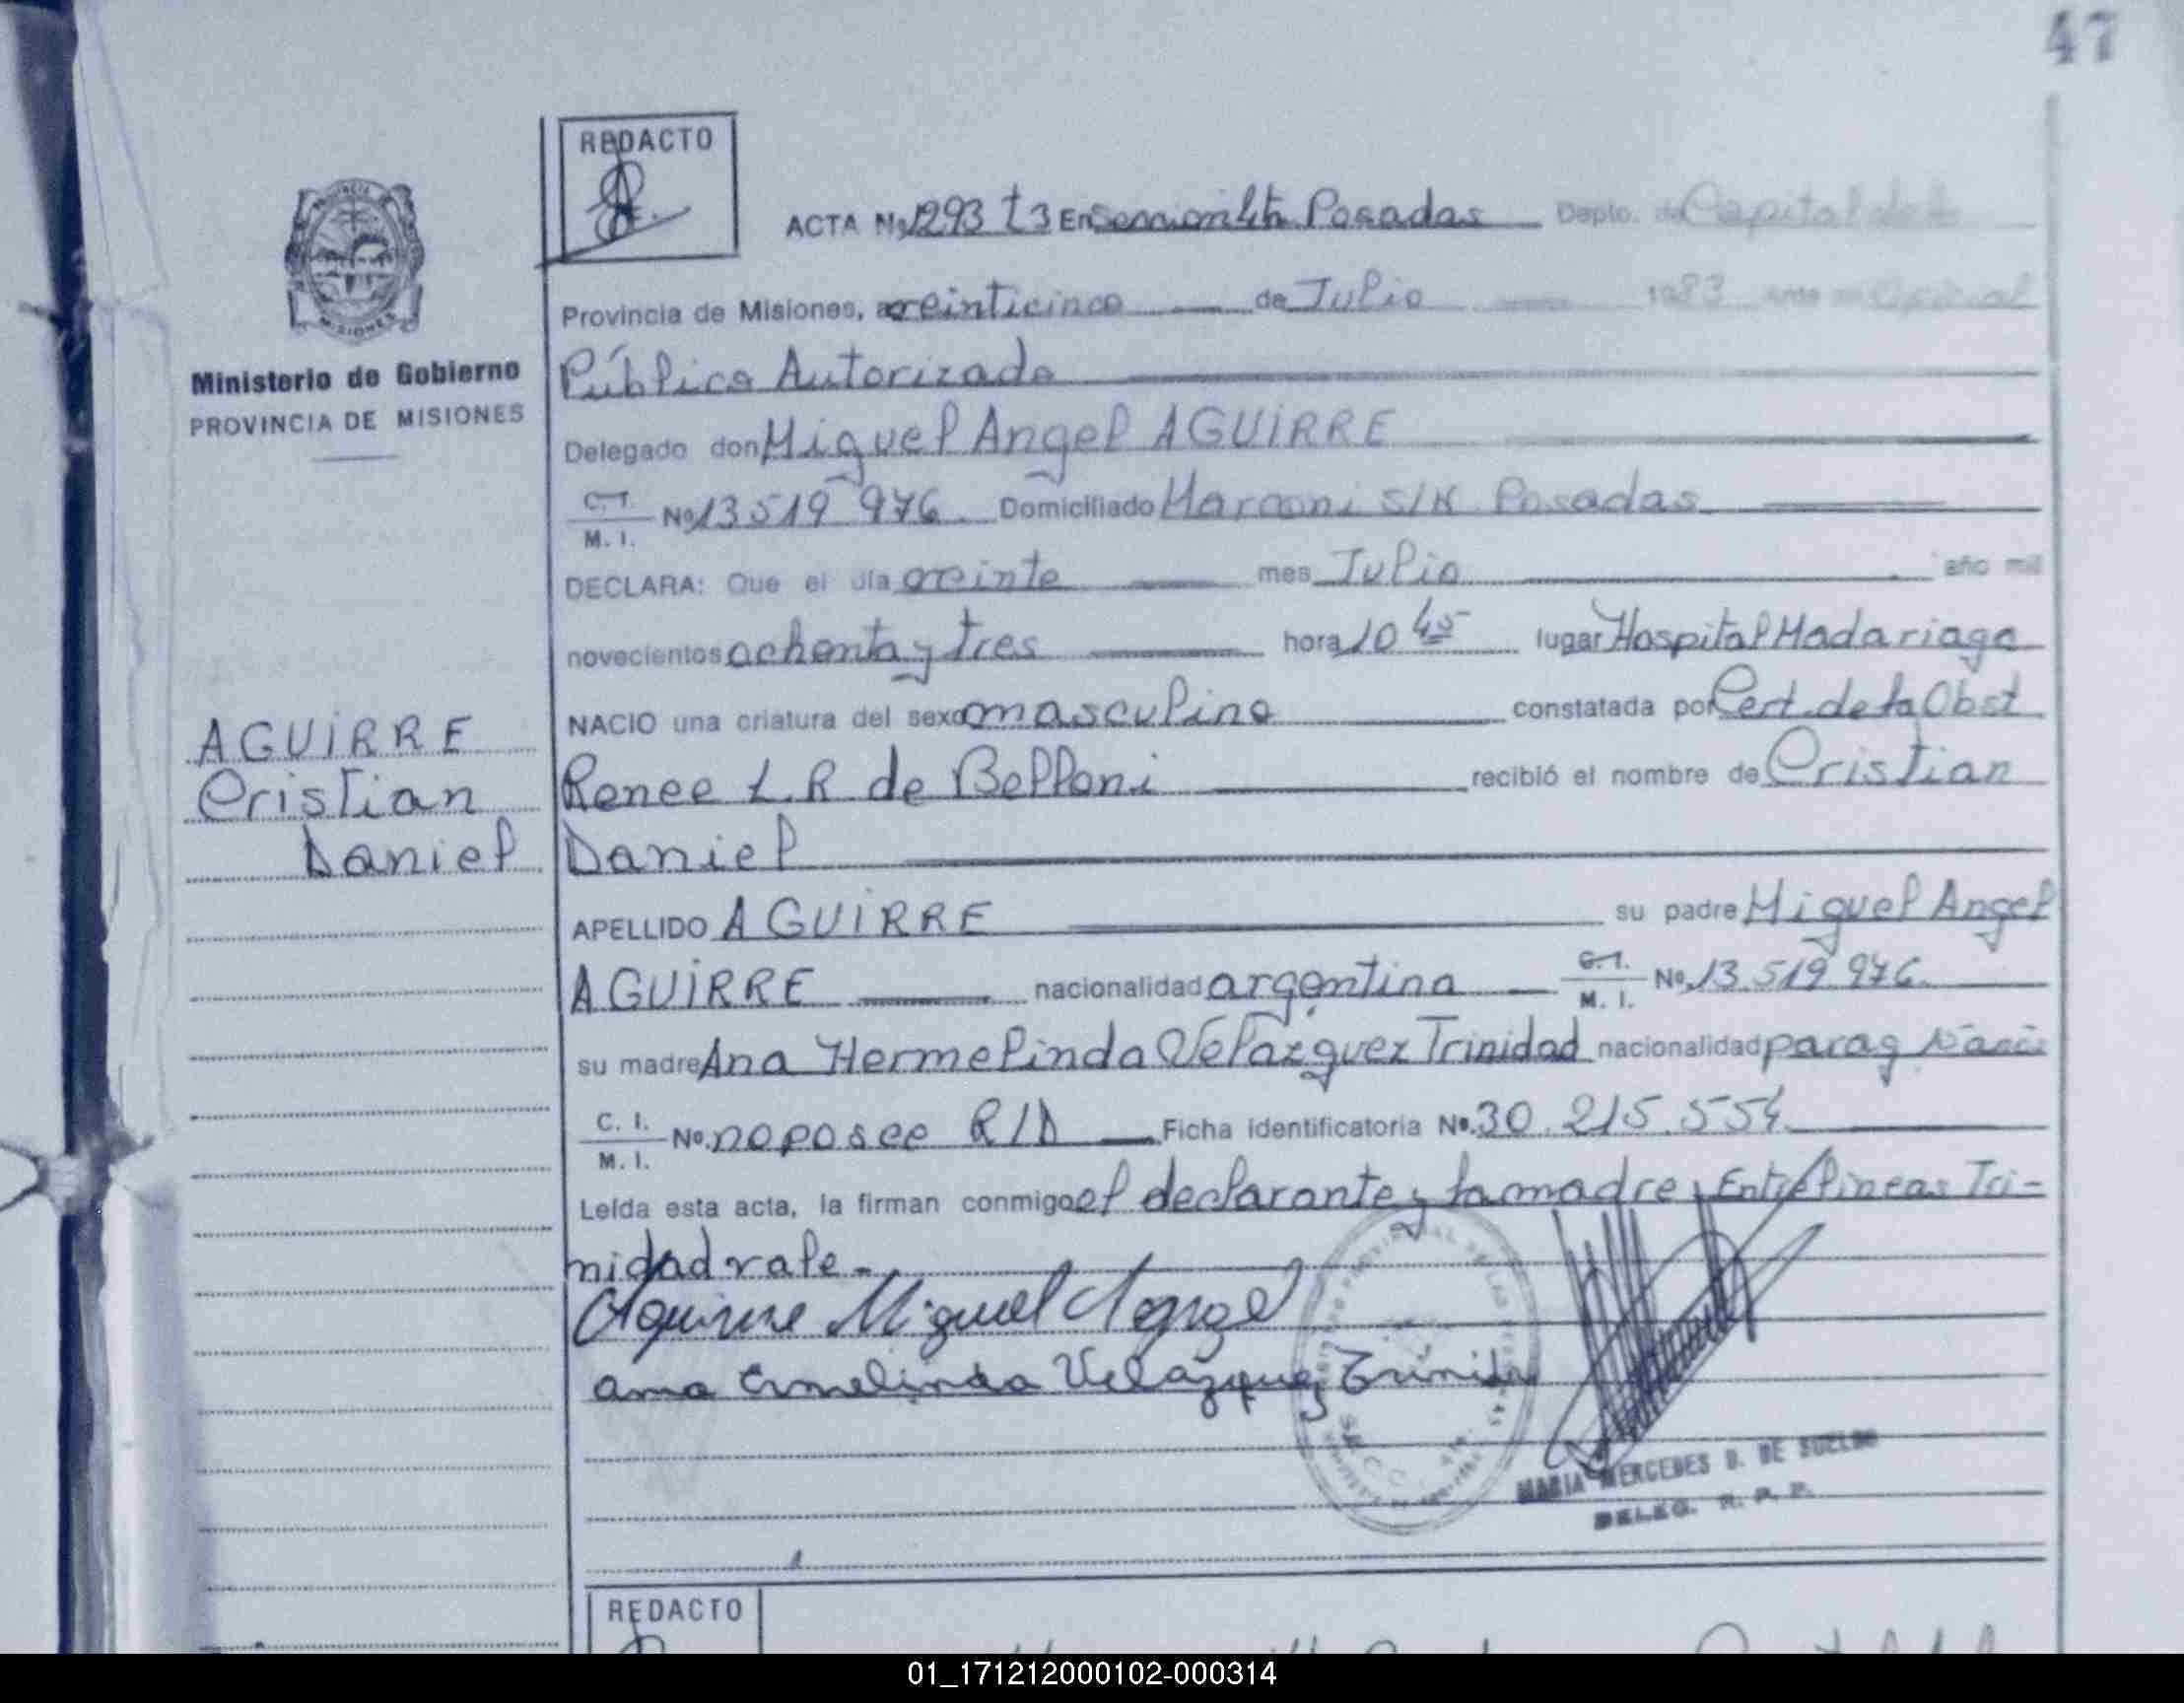 47
REDACTO
ACTA No 1293 t3 En Seccion 4ta Posadas Depto. de Capital de la
Provincia de Misiones, a veinticinco de Julio 1983 ante mi Oficial
Público Autorizado
Ministerio de Gobierno
PROVINCIA DE MISIONES
Delegado don Miguel Angel AGUIRRE
C.I. M. I. No 13 519 976 Domiciliado Marconi S/N Posadas
DECLARA: Que el día veinte mes Julio año mil
novecientos ochenta y tres hora 10 45 lugar Hospital Madariaga
NACIO una criatura del sexo masculino constatada por Cert. de la Obst
AGUIRRE
Cristian
Daniel
Renee L. R de Belloni recibió el nombre de Cristian
Daniel
APELLIDO AGUIRRE su padre Miguel Angel
AGUIRRE nacionalidad argentina C.I. M. I. No 13.519.976.
su madre Ana Hermelinda Velazquez Trinidad nacionalidad paraguaya
C. I. M. I. No. no posee R/D Ficha identificatoria No. 30.215.554.
Leída esta acta, la firman conmigo el declarante y la madre, Entrelineas Tri-
nidad vale.-
Aguirre Miguel Angel
ana Ermelinda Velazquez Trinida
MARIA MERCEDES D. DE SUELDO
DELEG. R. P. P.
REDACTO
01_171212000102-000314